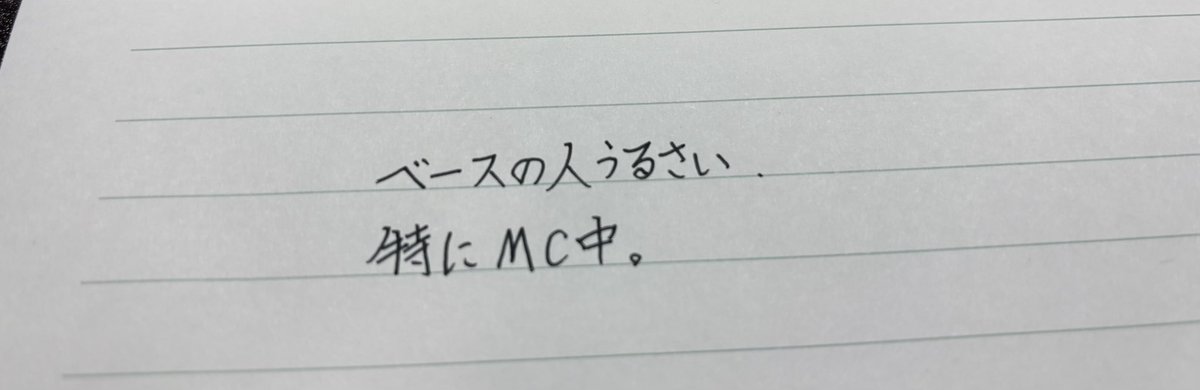 ベースの人うるさい.
特にMC中。